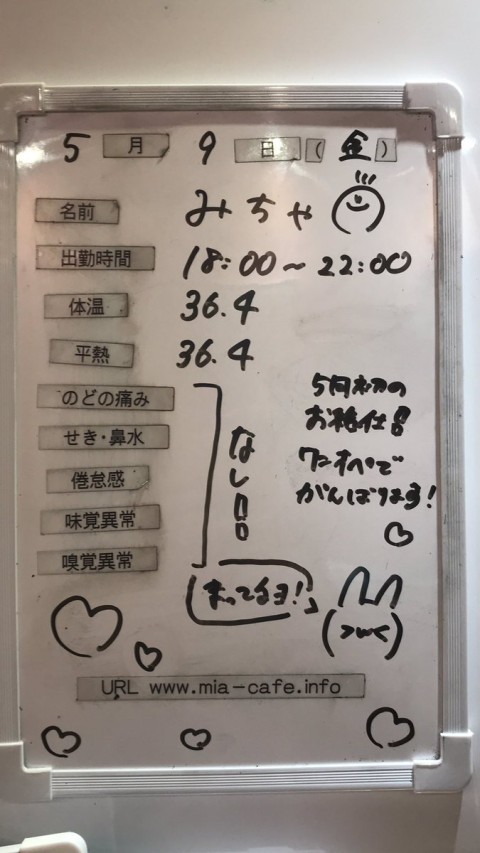 5月 9日(金)
名前 みちゃ
出勤時間 18:00～22:00
体温 36.4
平熱 36.4
のどの痛み
せき・鼻水
倦怠感
味覚異常
嗅覚異常
なし!!
5月初の
お給仕!!
ワンオペで
がんばります!
まってるヨ!
(>ω<)
URL www.mia-cafe.info